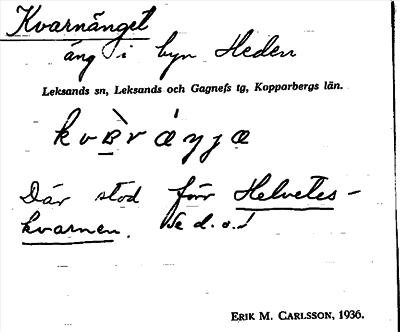 Kvarnänget
äng i byn Heden
Leksands sn, Leksands och Gagnefs tg, Kopparbergs län.
Där stod förr Helvetes-
kvarnen. Se d. o.!
ERIK M. CARLSSON, 1936.